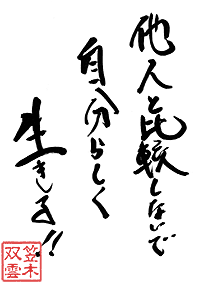 他人と比較しないで
自分らしく
生きしる!!
笠木
双雲